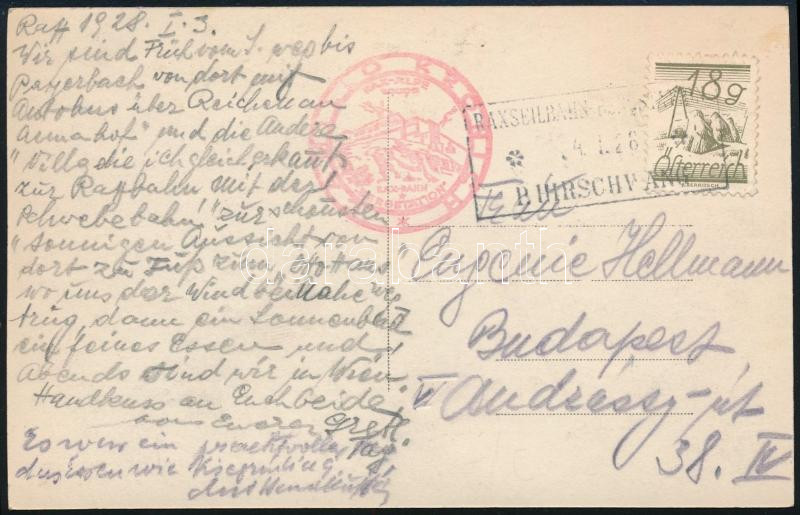 Rax 1928. I. 3.
Wir sind Früh vom S. weg bis
Payerbach von dort mit
Autobus über Reichenau
Annahof" und die Andere
"Villa die ich gleich gekauft
zur Raxbahn mit der
Schwebebahn!" zur schönsten
"Sonnigen Aussicht von
dort zu Fuß zum "Ottohaus
wo uns der Wind beinahe
trug, dann ein Sonnenbad
ein feines Essen und
Abends sind wir in Wien.
Handkuss an Euch beide
von Eurer Gretl.
Es war ein prachtvoller Tag
das Essen wie
RAX-BAHN
RAXSEILBAHN
4. I. 28
P. HIRSCHWANG
18g
Österreich
Frau
Eugenie Hellmann
Budapest
VI Andrássy-út
38. IV
darabanth